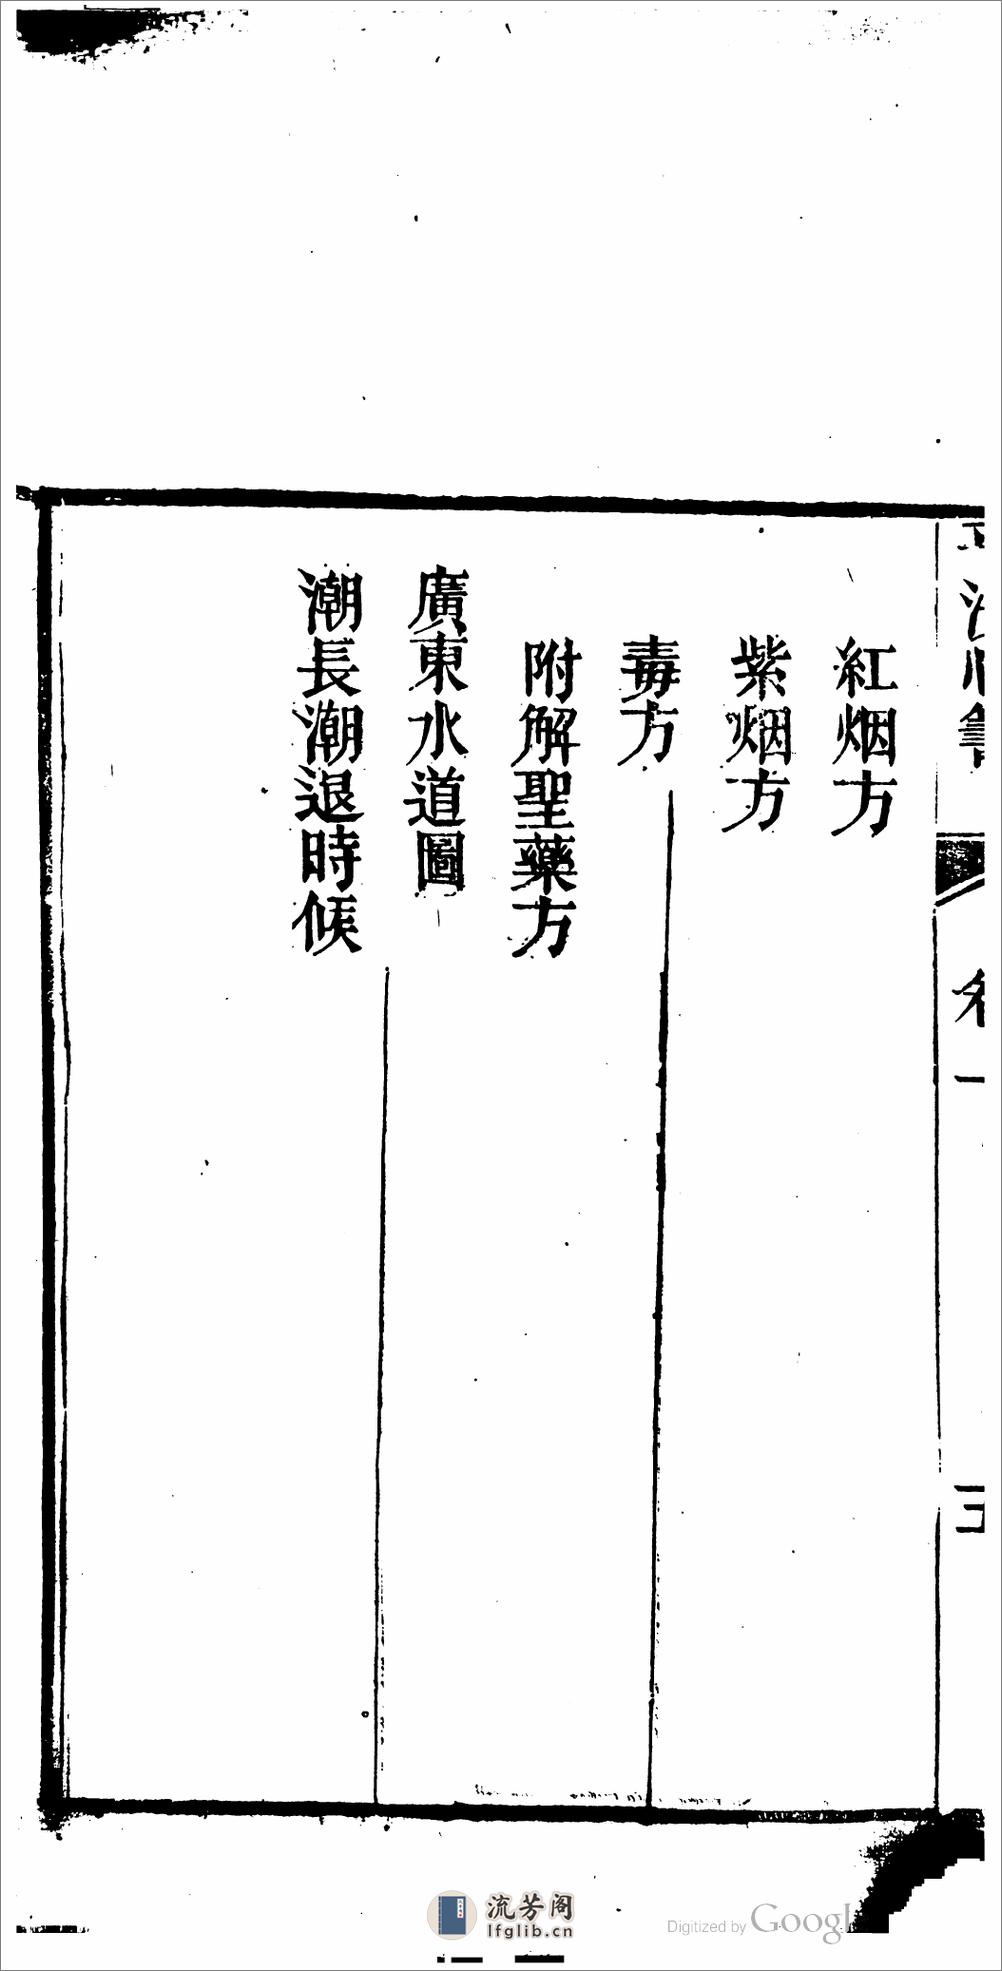 紅烟方
紫烟方
毒方
附解聖藥方
廣東水道圖
潮長潮退時候
卷一
三
流芳阁
lfglib.cn
Digitized by Google